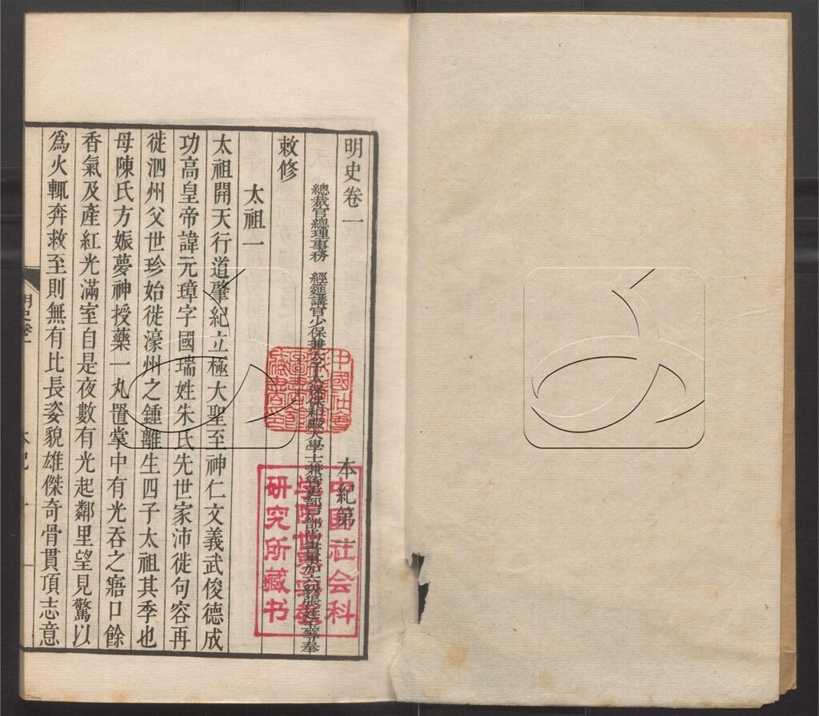 明史卷一 本紀第一
總裁官總理事務 經筵講官少保兼太子太保保和殿大學士兼管吏部戶部尚書事加六級張廷玉等奉
敕修
太祖一
太祖開天行道肇紀立極大聖至神仁文義武俊德成
功高皇帝諱元璋字國瑞姓朱氏先世家沛徙句容再
徙泗州父世珍始徙濠州之鍾離生四子太祖其季也
母陳氏方娠夢神授藥一丸置掌中有光吞之寤口餘
香氣及產紅光滿室自是夜數有光起鄰里望見驚以
為火輒奔救至則無有比長姿貌雄傑奇骨貫頂志意
明史卷一
本紀
一
中國社會
中国社会科
学院
研究所藏书